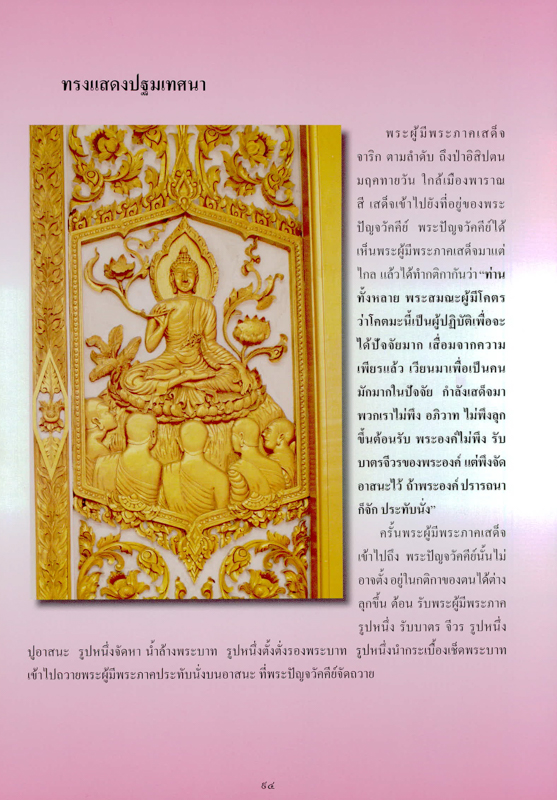 ทรงแสดงปฐมเทศนา
พระผู้มีพระภาคเสด็จ
จาริก ตามลำดับ ถึงป่าอิสิปตน
มฤคทายวัน ใกล้เมืองพาราณ
สี เสด็จเข้าไปยังที่อยู่ของพระ
ปัญจวัคคีย์ พระปัญจวัคคีย์ได้
เห็นพระผู้มีพระภาคเสด็จมาแต่
ไกล แล้วได้ทำกติกากันว่า “ท่าน
ทั้งหลาย พระสมณะผู้มีโคตร
ว่าโคตมะนี้เป็นผู้ปฏิบัติเพื่อจะ
ได้ปัจจัยมาก เสื่อมจากความ
เพียรแล้ว เวียนมาเพื่อเป็นคน
มักมากในปัจจัย กำลังเสด็จมา
พวกเราไม่พึง อภิวาท ไม่พึงลุก
ขึ้นต้อนรับ พระองค์ไม่พึง รับ
บาตรจีวรของพระองค์ แต่พึงจัด
อาสนะไว้ ถ้าพระองค์ ปรารถนา
ก็จัก ประทับนั่ง”
ครั้นพระผู้มีพระภาคเสด็จ
เข้าไปถึง พระปัญจวัคคีย์นั้นไม่
อาจตั้ง อยู่ในกติกาของตนได้ต่าง
ลุกขึ้น ต้อน รับพระผู้มีพระภาค
รูปหนึ่ง รับบาตร จีวร รูปหนึ่ง
ปูอาสนะ รูปหนึ่งจัดหา น้ำล้างพระบาท รูปหนึ่งตั้งตั่งรองพระบาท รูปหนึ่งนำกระเบื้องเช็ดพระบาท
เข้าไปถวายพระผู้มีพระภาคประทับนั่งบนอาสนะ ที่พระปัญจวัคคีย์จัดถวาย
๙๔